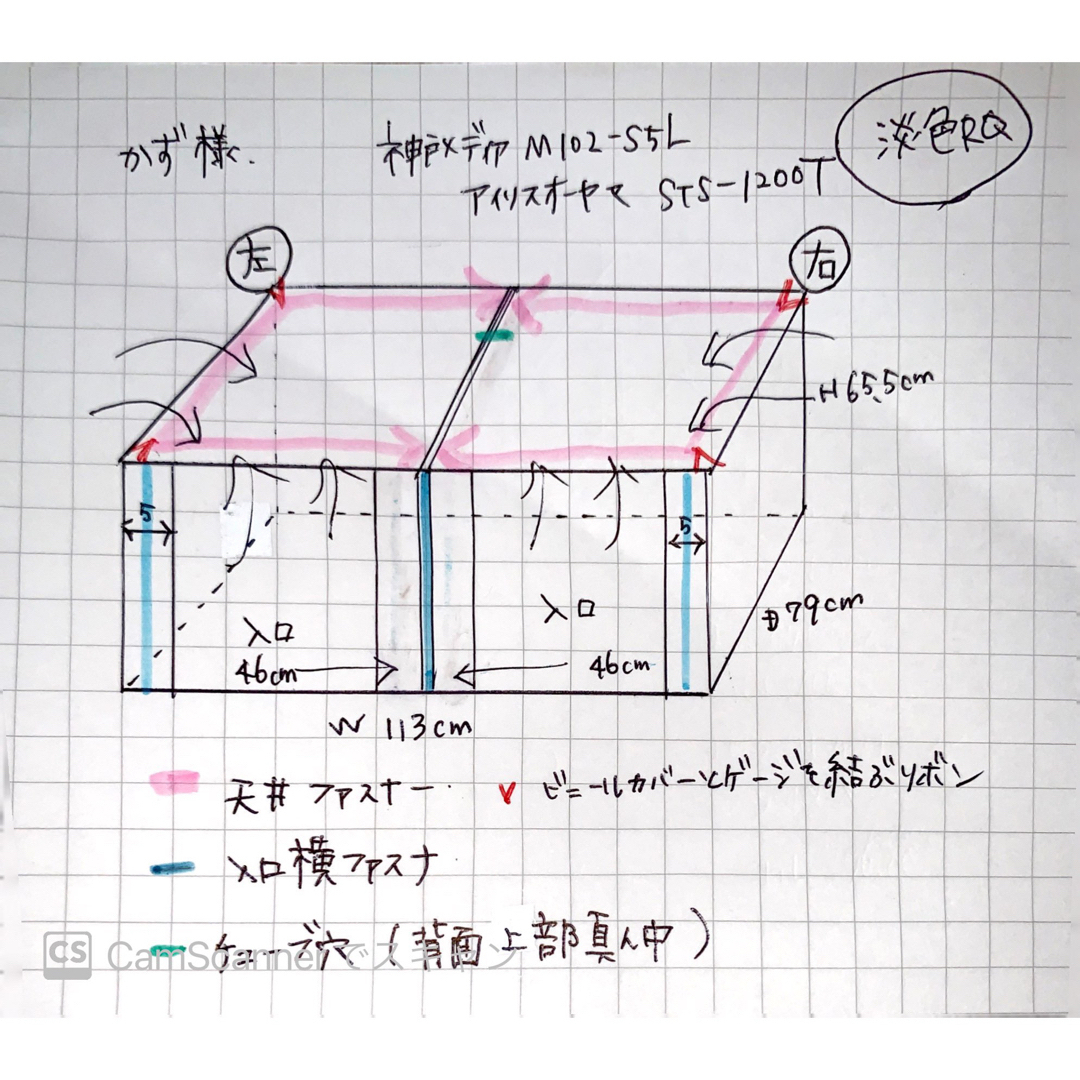 かず様
神戸メディア M102-S5L
アイリスオーヤマ STS-1200T
淡色RQ
左
右
H 65.5cm
5
5
入口
入口
46cm
46cm
D79cm
W 113cm
天井 ファスナー
ビニールカバーとゲージを結ぶリボン
入口横ファスナ
チューブ穴 (背面上部真ん中)
CS CamScannerでスキャン